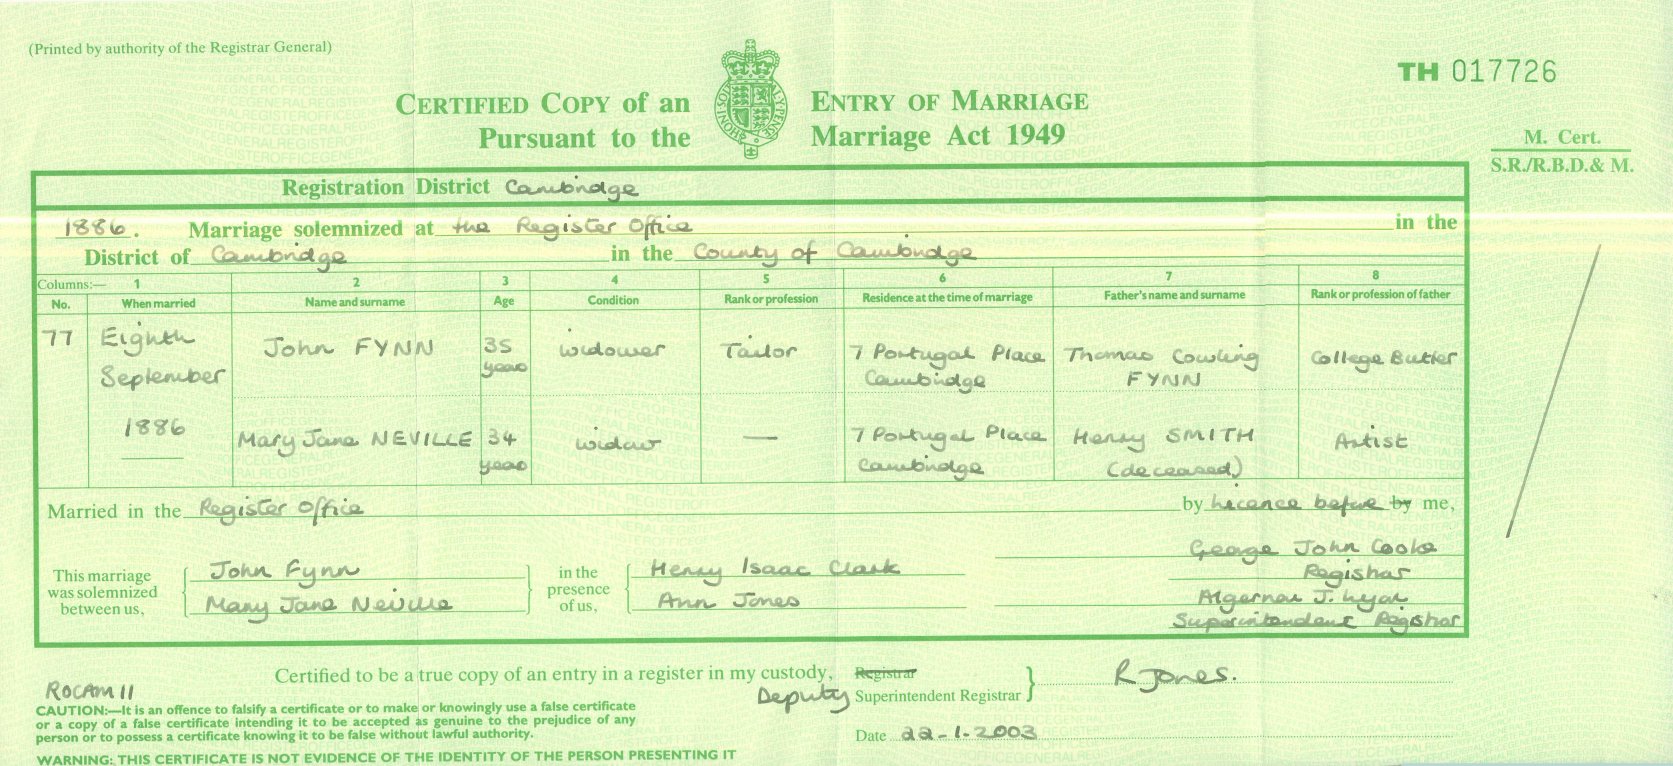 (Printed by authority of the Registrar General)
TH 017726
CERTIFIED COPY of an ENTRY OF MARRIAGE
Pursuant to the Marriage Act 1949
HONI SOIT QUI MAL Y PENSE
M. Cert.
S.R./R.B.D.& M.
Registration District Cambridge
1886. Marriage solemnized at the Register Office in the
District of Cambridge in the County of Cambridge
Columns:— 1 2 3 4 5 6 7 8
No. When married Name and surname Age Condition Rank or profession Residence at the time of marriage Father's name and surname Rank or profession of father
77 Eighth September 1886
John FYNN 35 years widower Tailor 7 Portugal Place Cambridge Thomas Cowling FYNN College Butler
Mary Jane NEVILLE 34 years widow — 7 Portugal Place Cambridge Henry SMITH (deceased) Artist
Married in the Register Office by licence before by me,
This marriage was solemnized between us,
John Fynn
Mary Jane Neville
in the presence of us,
Henry Isaac Clark
Ann Jones
George John Cooke
Registrar
Algernon J. Lyon
Superintendent Registrar
Certified to be a true copy of an entry in a register in my custody, Registrar
Deputy Superintendent Registrar
R Jones.
Date 22-1-2003
ROCAM 11
CAUTION:—It is an offence to falsify a certificate or to make or knowingly use a false certificate
or a copy of a false certificate intending it to be accepted as genuine to the prejudice of any
person or to possess a certificate knowing it to be false without lawful authority.
WARNING: THIS CERTIFICATE IS NOT EVIDENCE OF THE IDENTITY OF THE PERSON PRESENTING IT